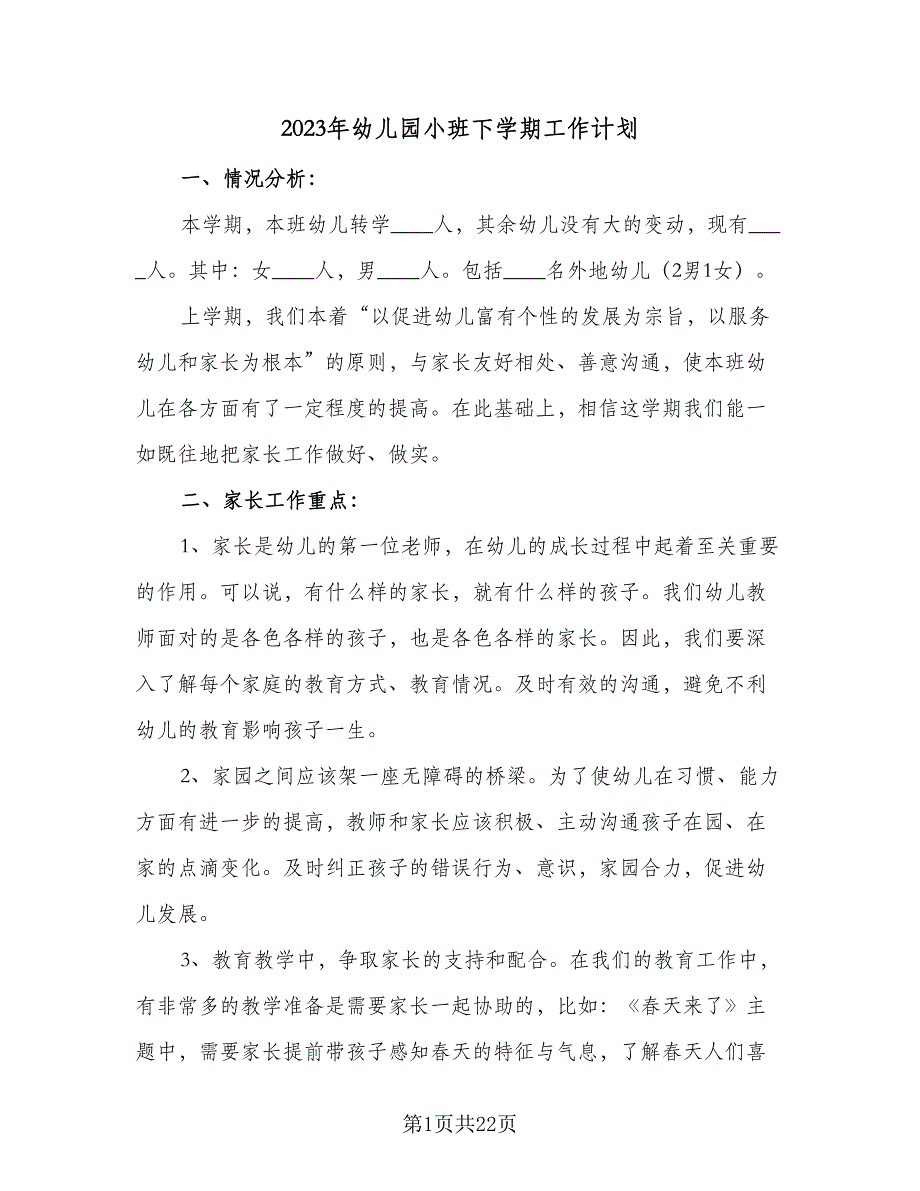 2023年幼儿园小班下学期工作计划
一、情况分析：
本学期，本班幼儿转学____人，其余幼儿没有大的变动，现有___
_人。其中：女____人，男____人。包括____名外地幼儿（2男1女）。
上学期，我们本着“以促进幼儿富有个性的发展为宗旨，以服务
幼儿和家长为根本”的原则，与家长友好相处、善意沟通，使本班幼
儿在各方面有了一定程度的提高。在此基础上，相信这学期我们能一
如既往地把家长工作做好、做实。
二、家长工作重点：
1、家长是幼儿的第一位老师，在幼儿的成长过程中起着至关重要
的作用。可以说，有什么样的家长，就有什么样的孩子。我们幼儿教
师面对的是各色各样的孩子，也是各色各样的家长。因此，我们要深
入了解每个家庭的教育方式、教育情况。及时有效的沟通，避免不利
幼儿的教育影响孩子一生。
2、家园之间应该架一座无障碍的桥梁。为了使幼儿在习惯、能力
方面有进一步的提高，教师和家长应该积极、主动沟通孩子在园、在
家的点滴变化。及时纠正孩子的错误行为、意识，家园合力，促进幼
儿发展。
3、教育教学中，争取家长的支持和配合。在我们的教育工作中，
有非常多的教学准备是需要家长一起协助的，比如：《春天来了》主
题中，需要家长提前带孩子感知春天的特征与气息，了解春天人们喜
第1页共22页